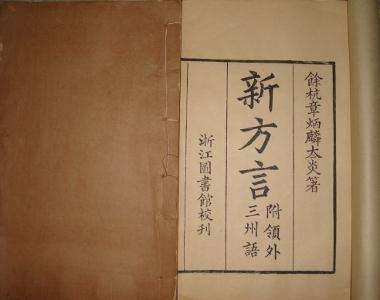 餘杭章炳麟太炎箸
新方言
附領外
三州語
浙江圖書館校刊